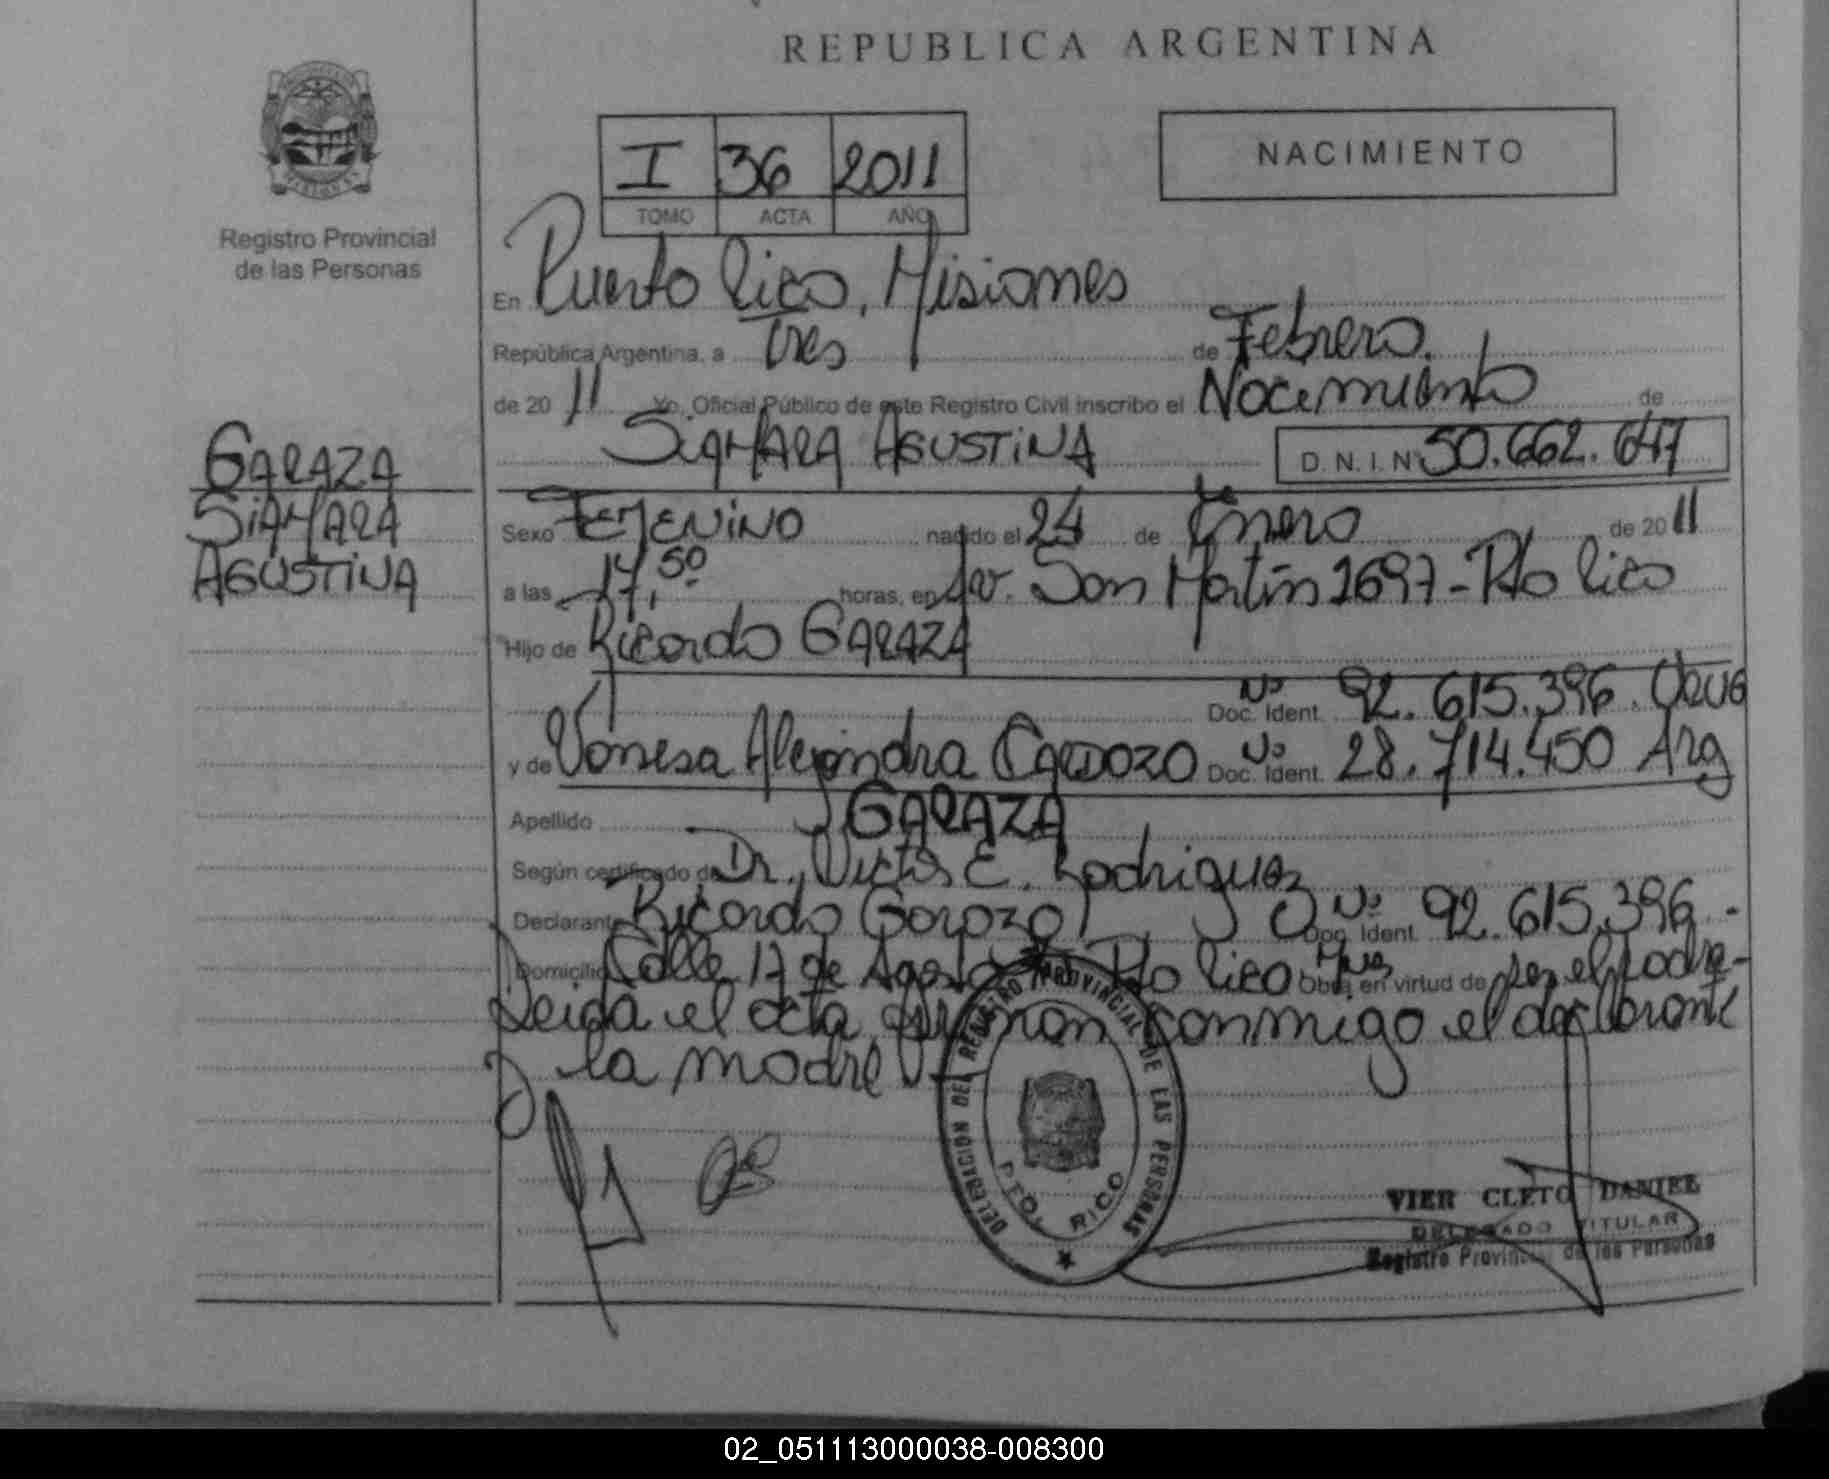 REPUBLICA ARGENTINA
NACIMIENTO
I 36 2011
TOMO ACTA AÑO
Registro Provincial
de las Personas
En Puerto Rico, Misiones
República Argentina, a tres de Febrero.
de 20 11 Yo, Oficial Público de este Registro Civil inscribo el Nacimiento de
SIAMARA AGUSTINA D.N.I. N 50.662.647
GARAZA
SIAMARA
AGUSTINA
Sexo FEMENINO nacido el 24 de Enero de 20 11
a las 17,50 horas, en Av. San Martín 1697 - Pto Rico
Hijo de Ricardo GARAZA
Nº Doc. Ident. 92.615.396. URUG
y de Vanesa Alejandra CARDOZO Nº Doc. Ident. 28.714.450 Arg
Apellido GARAZA
Según certificado de Dr. Victor E. Rodriguez
Declarante Ricardo Garaza Nº Doc. Ident. 92.615.396 -
Domicilio Calle 17 de Agosto Pto Rico Mnes Obra en virtud de ser el padre -
Leida el acta firman conmigo el declarante
y la madre
DELEGACION DEL REGISTRO PROVINCIAL DE LAS PERSONAS
PTO. RICO
VIER CLETO DANIEL
DELEGADO TITULAR
Registro Provincial de las Personas
02_051113000038-008300